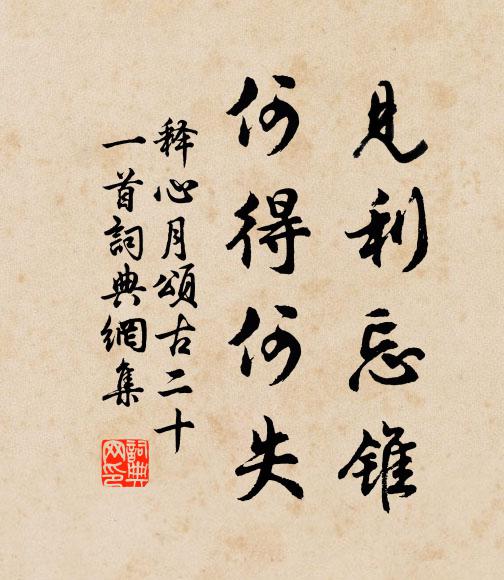 見利忘錐
何得何失
释心月頌古二十
一首詞典網集
詞典网印